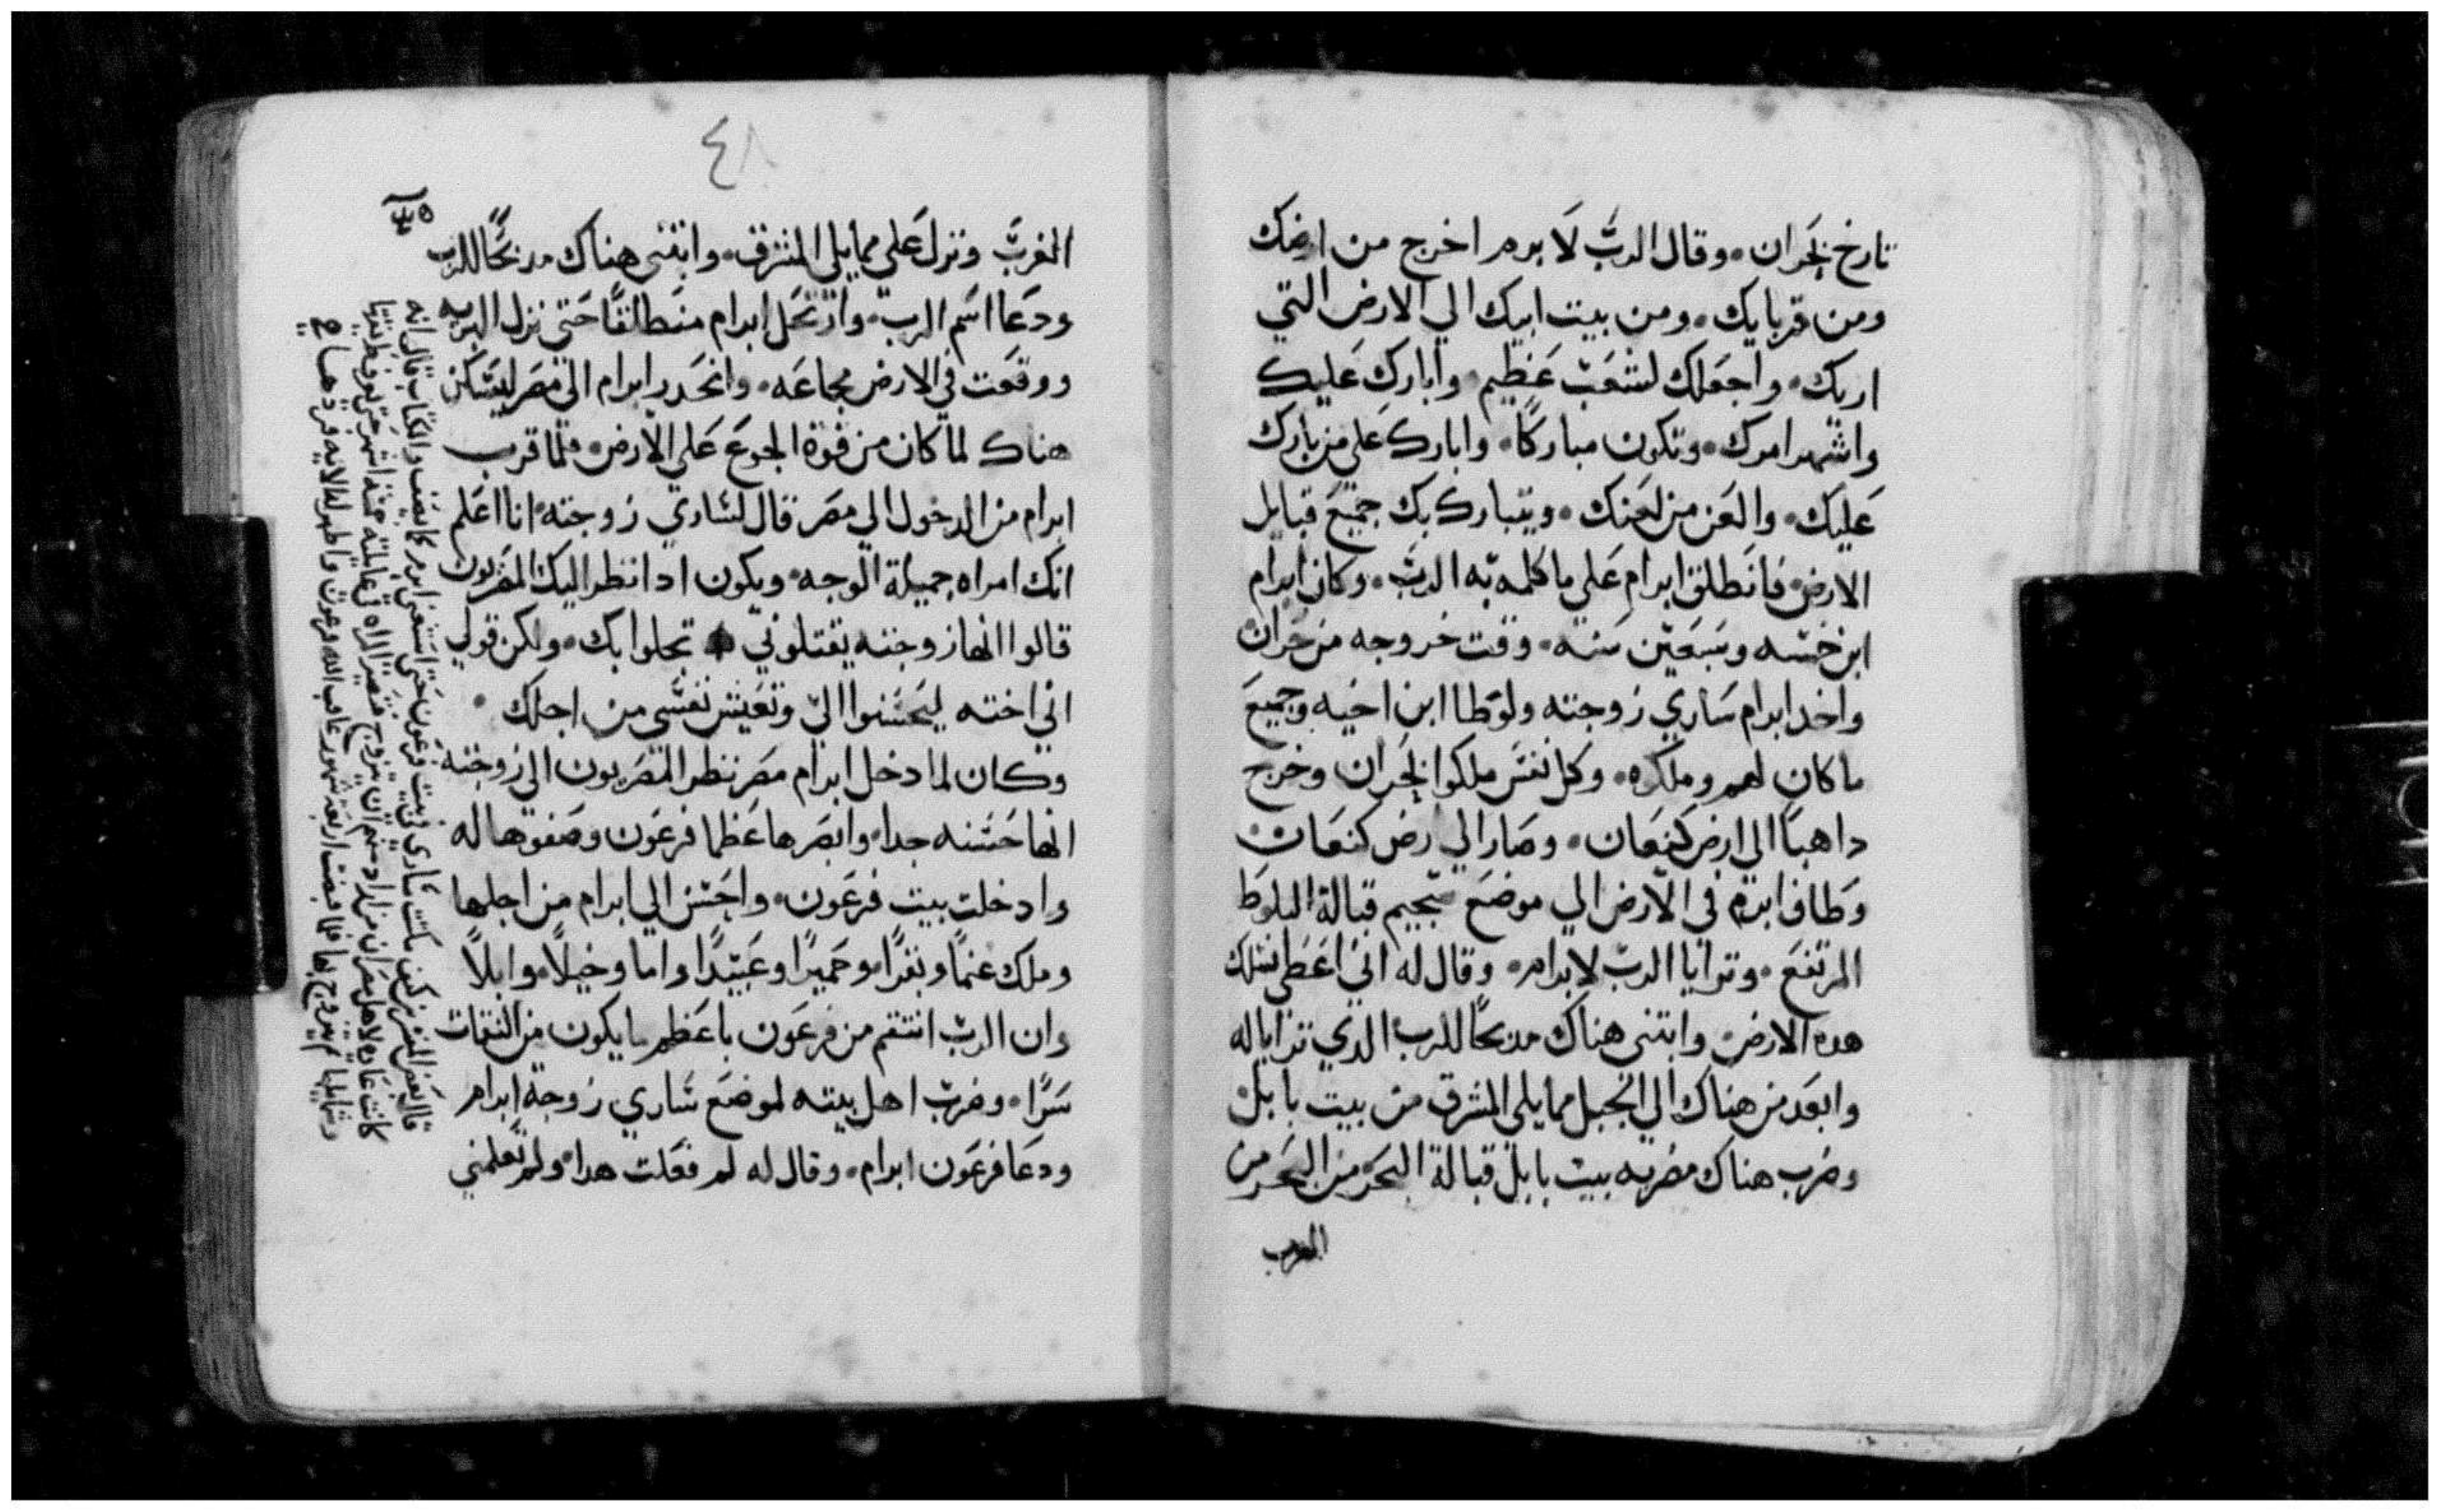 تارخ بحران ٠ وقال الرب لابرام اخرج من ارضك
ومن قربايك ٠ ومن بيت ابيك الي الارض التي
اريك ٠ واجعلك لشعب عظيم ٠ وابارك عليك
واشهر امرك ٠ وتكون مباركا ٠ وابارك علي من بارك
عليك ٠ والعن من لعنك ٠ ويتبارك بك جميع قبايل
الارض ٠ فانطلق ابرام علي ما كلمه به الرب ٠ وكان ابرام
ابن خمسه وسبعين سنه ٠ وقت خروجه من حران
واخد ابرام ساري زوجته ولوطا ابن اخيه وجميع
ما كان لهم وملكوه ٠ وكل نفس ملكوا بحران وخرج
داهبا الي ارض كنعان ٠ وصار الي رض كنعان
وطاف ابرام في الارض الي موضع قبالة البلوط
المرتفع ٠ وترايا الرب لابرام ٠ وقال له اني اعطي نسلك
هده الارض ٠ وابتني هناك مدبحا للرب الدي ترايا له
وابعد من هناك الي الجبل مما يلي المشرق من بيت بابل
وضرب هناك مضربه بيت بابل قبالة البحر من البحر من
الغرب
٤٨
الغرب ونزل علي مما يلي المشرق ٠ وابتني هناك مدبحا للرب
ودعا اسم الرب ٠ وارتحل ابرام منطلقا حتي نزل البريه
ووقعت في الارض مجاعه ٠ وانحدر ابرام الي مصر ليسكن
هناك لما كان من قوة الجوع علي الارض ٠ فلما قرب
ابرام من الدخول الي مصر قال لساري زوجته ٠ انا اعلم
انك امراه جميلة الوجه ٠ ويكون ادا نظر اليك المصريون
قالوا انها زوجته يقتلوني تخلوا بك ٠ ولكن قولي
اني اخته ليحسنوا الي وتعيش نفسي من اجلك ٠
وكان لما دخل ابرام مصر نظر المصريون الي زوجته
انها حسنه جدا ٠ وابصرها عظما فرعون وصفوها له
وادخلت بيت فرعون ٠ واحسن الي ابرام من اجلها
وملك غنما وبقرا ٠ وحميرا وعبيدا واما وخيلا ٠ وابلا
وان الرب انتقم من فرعون باعظم ما يكون من النقمات
سرا ٠ وضرب اهل بيته لموضع ساري زوجة ابرام
ودعا فرعون ابرام ٠ وقال له لم فعلت هدا ٠ ولم تعلمني
قال بعض المفسرين مكتت ساري في بيت فرعون حتي استغني ابرام والكتاب قال انه